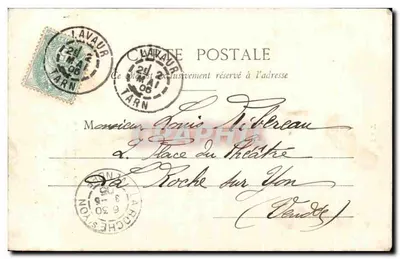 LAVAUR
24 2
MAI
06
TARN
LAVAUR
24 2
MAI
06
TARN
CARTE POSTALE
Ce côté est exclusivement réservé à l'adresse
Monsieur Louis Ribereau
2. Place du Théâtre
La Roche sur Yon
(Vendée)
LA ROCHE S YON
6 30